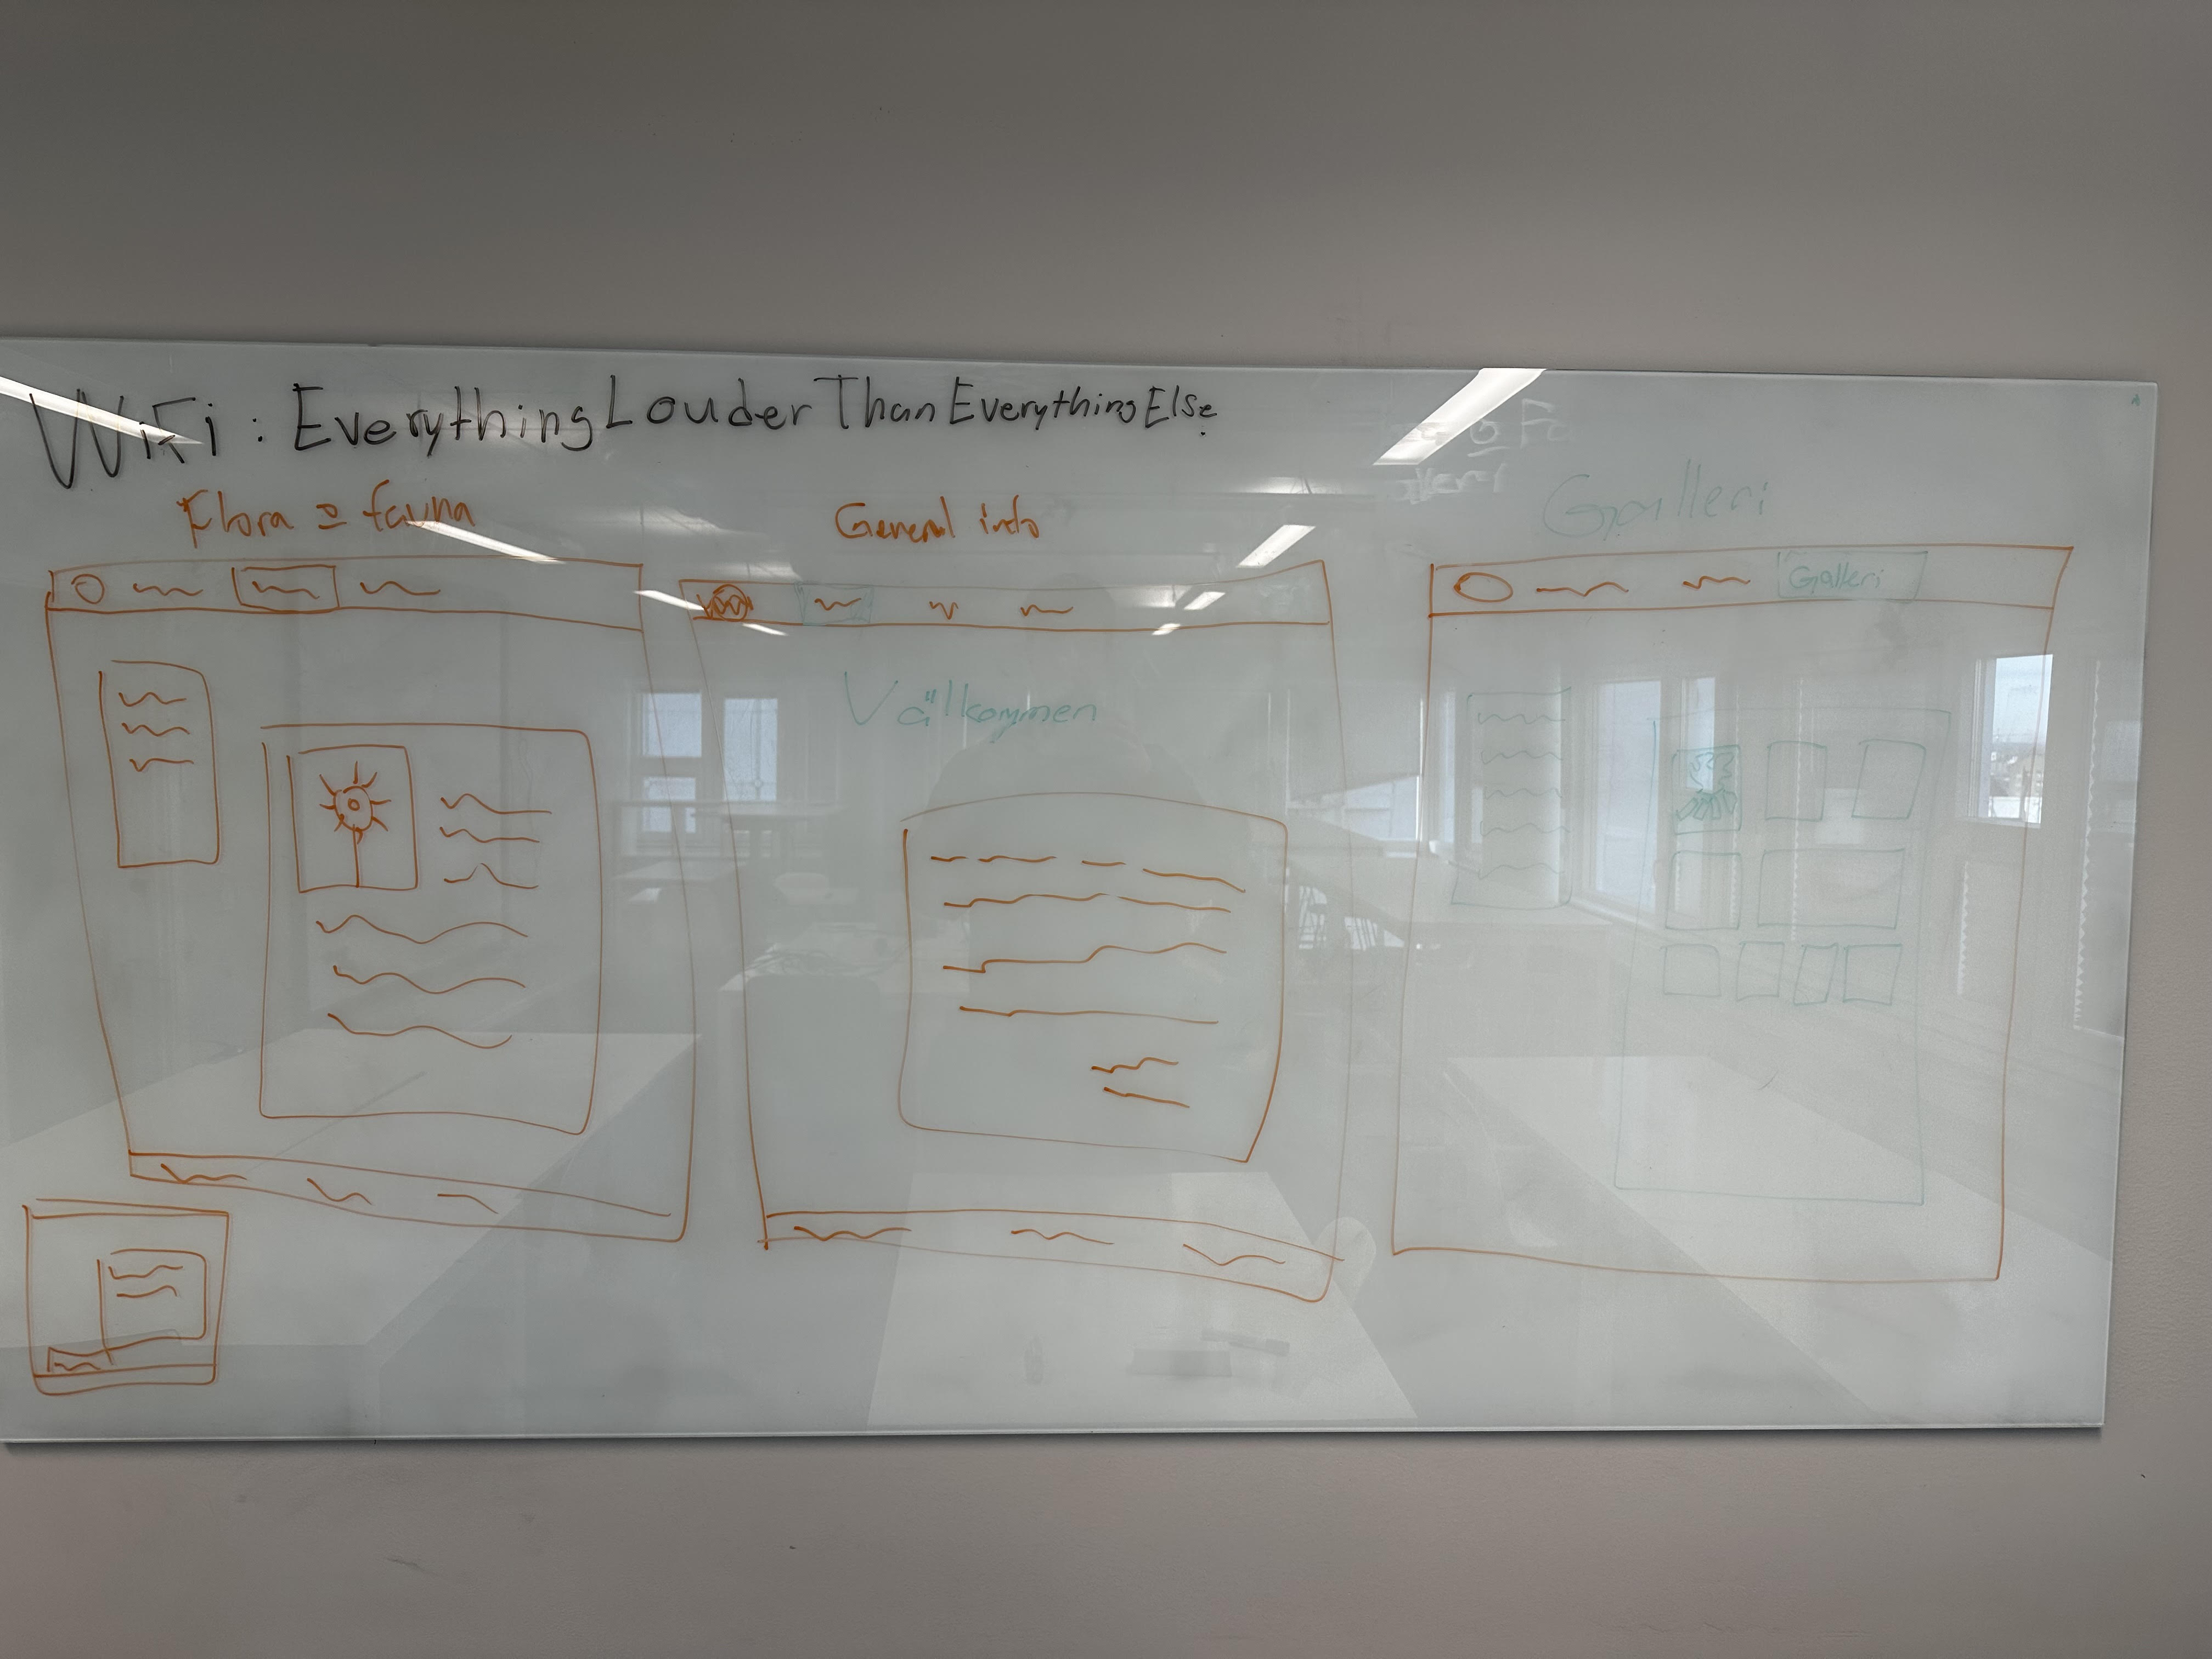 WiFi: EverythingLouderThanEverythingElse
Flora o fauna
General info
Galleri
Galleri
Välkommen